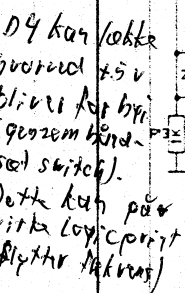 D4 kan lække
hvorved +5 v
bliver for høj
(gennem hånd-
sæt switch).
Dette kan påv
virke logicprint
(flytter frekvens)
1K